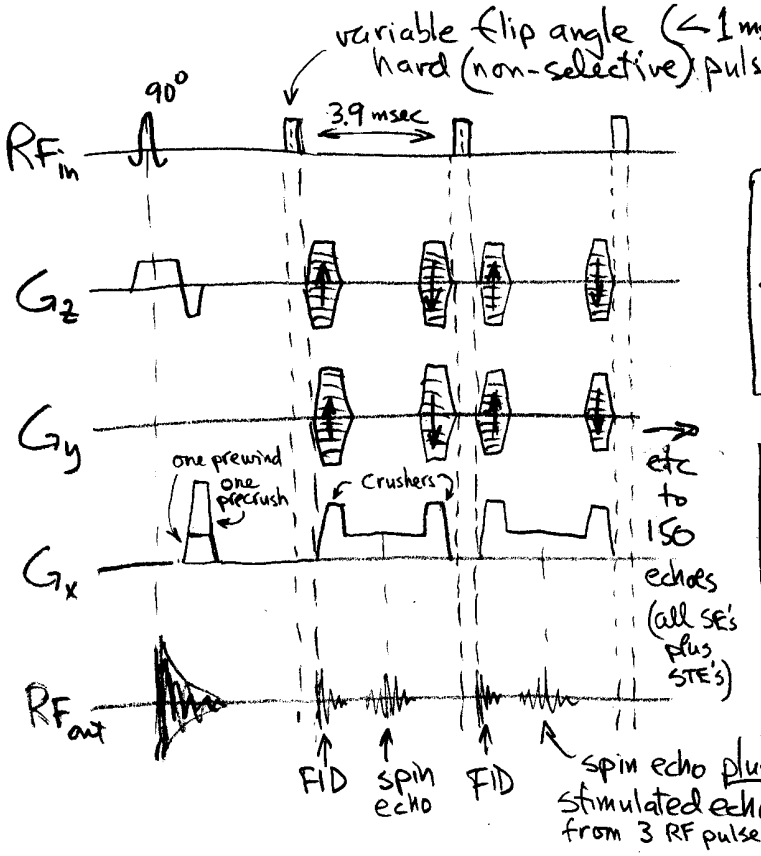 variable flip angle (<1 ms
hard (non-selective) puls
90°
3.9 msec
RFin
Gz
Gy
one prewind
one
precrush
Crushers
etc
to
150
echoes
(all SE's
plus
STE's)
Gx
RFout
FID
spin
echo
FID
spin echo plus
stimulated echo
from 3 RF pulse